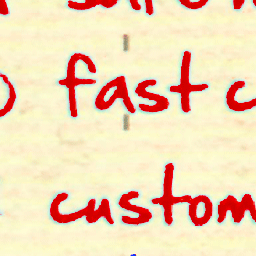 fast c
custom